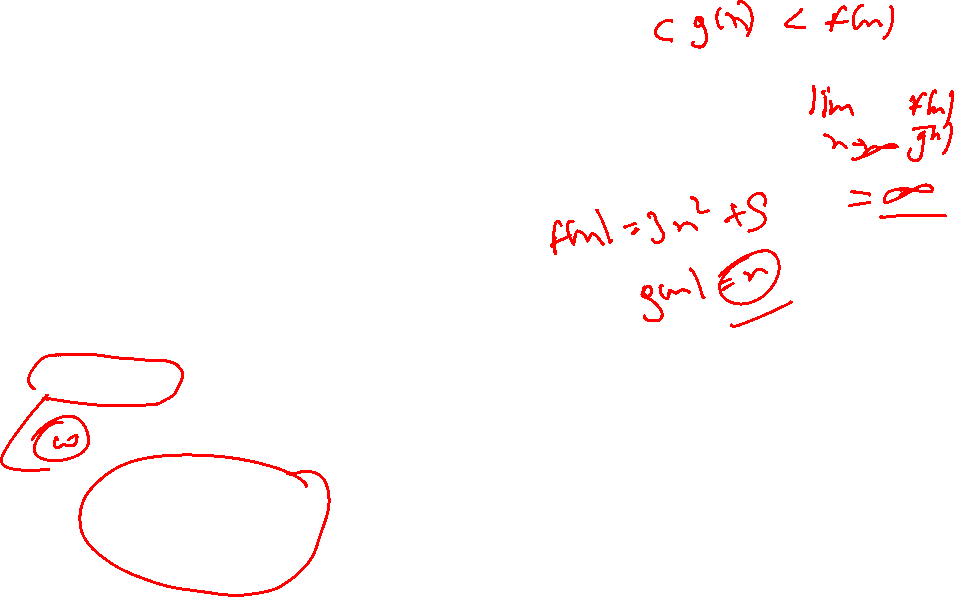 c g(n) < f(n)
lim f(n)
n→∞ g(n)
= ∞
f(n) = 3n² + 5
g(n) = n
ω